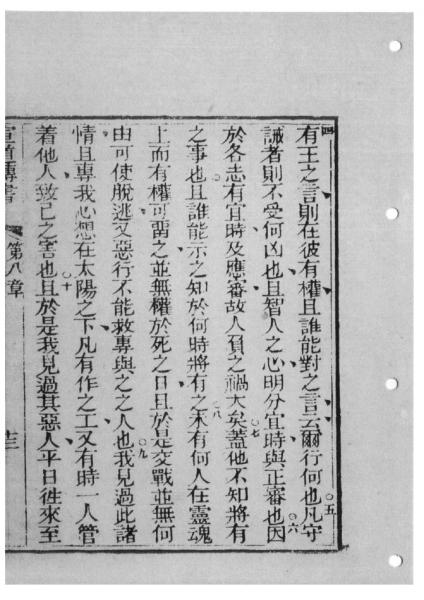 四有王之言則在彼有權且誰能對之言云爾行何也凡守五
誡者則不受何凶也且智人之心明分宜時與正審也因六
於各志有宜時及應審故人負之禍大矣蓋他不知將有七
之事也且誰能示之知於何時將有之未有何人在靈魂八
上而有權可畱之並無權於死之日且於是交戰並無何
由可使脫逃又惡行不能救專與之之人也我見過此諸九
情且專我心想在太陽之下凡有作之工又有時一人管
着他人致己之害也且於是我見過其惡人平日徃來至十
宣道傳書 第八章 十三